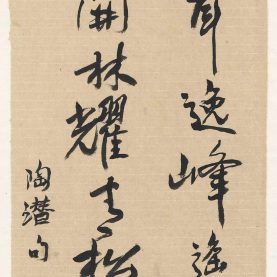 逸峰遙
開林耀青松
陶潜句